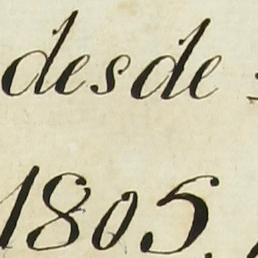 desde
1805.